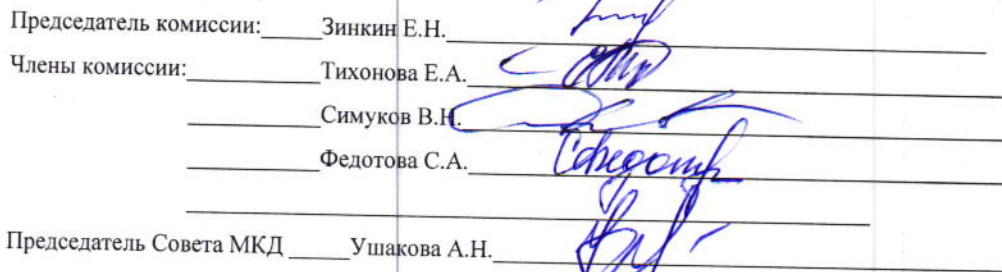 Председатель комиссии:_____Зинкин Е.Н.
Члены комиссии:___________Тихонова Е.А.
___________Симуков В.Н.
___________Федотова С.А.
Председатель Совета МКД _____Ушакова А.Н.